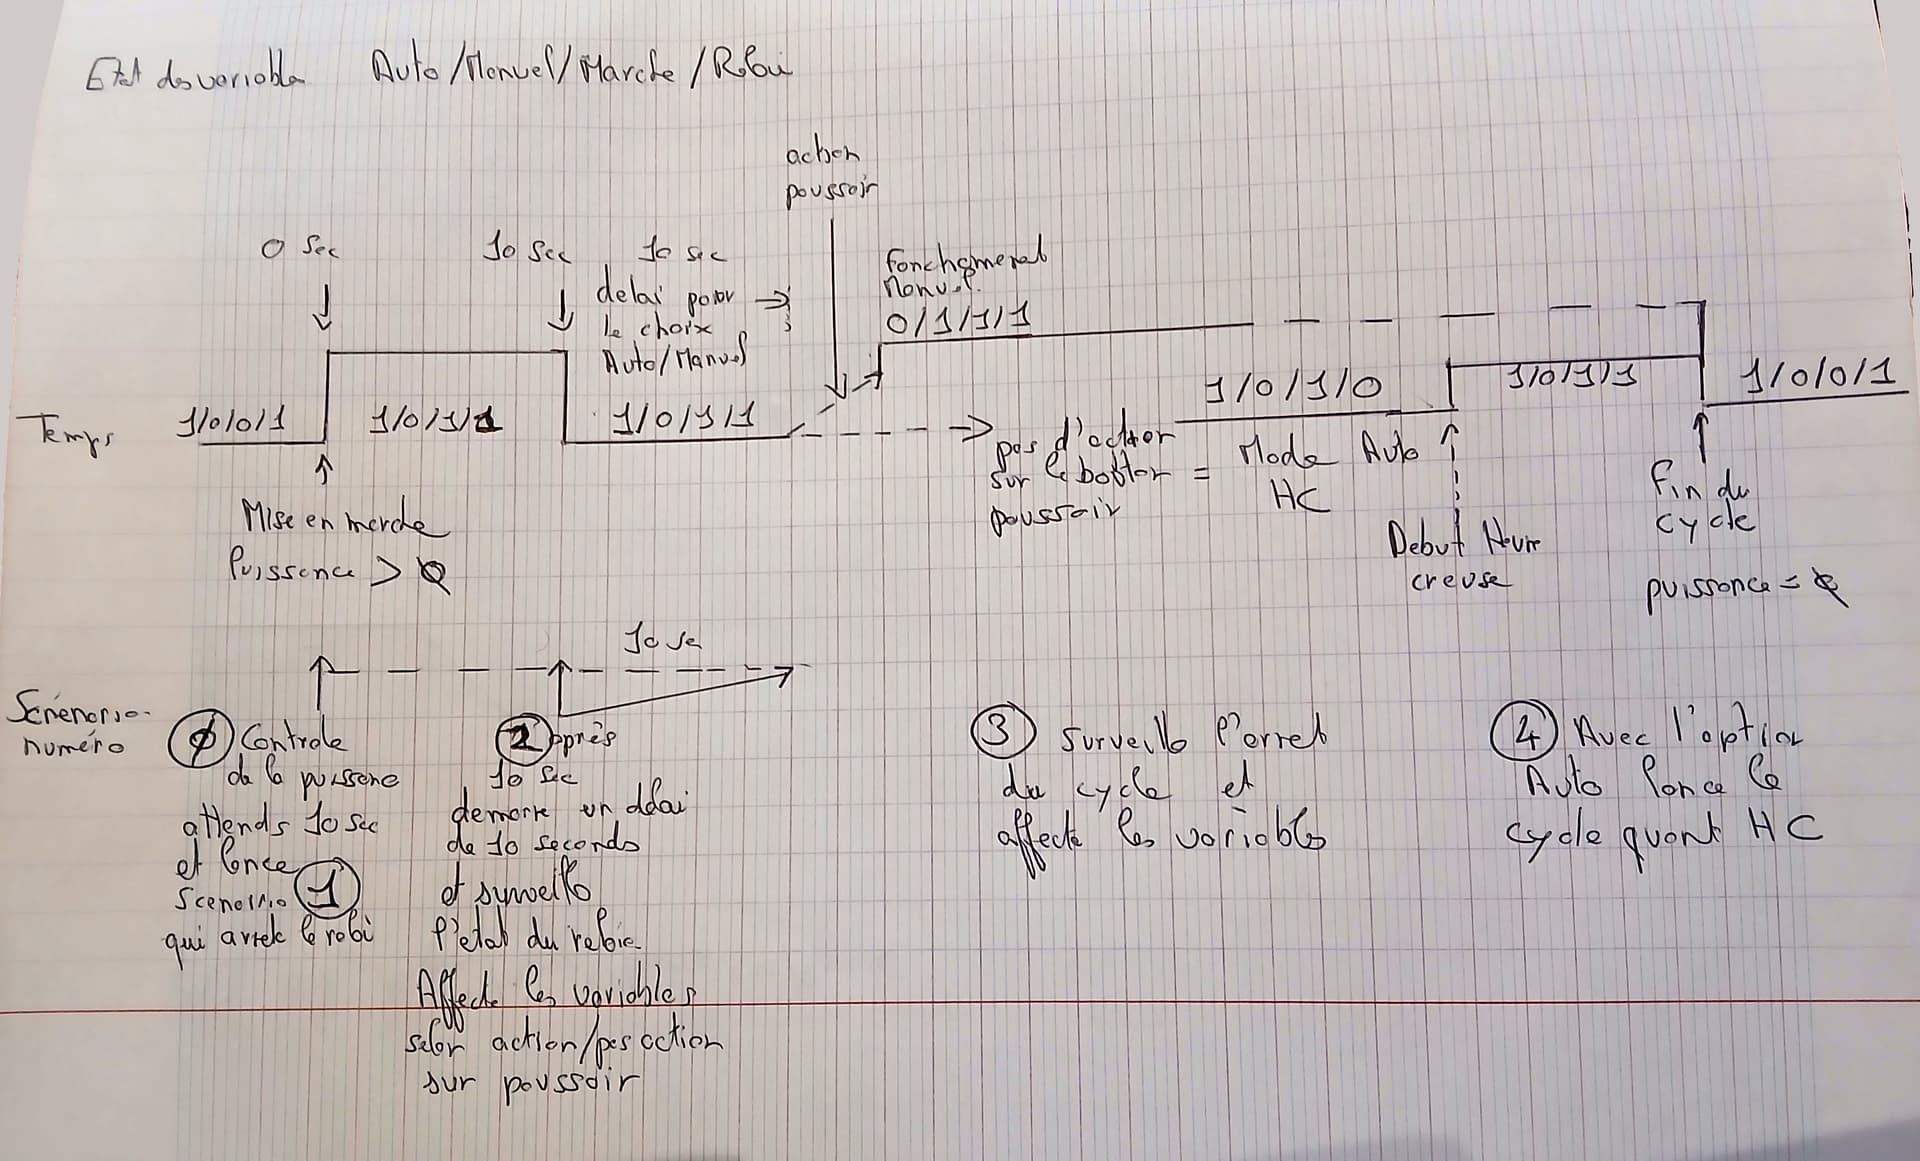 Etat des variables Auto/Manuel/Marche/Robi
action
poussoir
0 Sec
10 Sec
10 sec
delai pour
le choix
Auto/Manuel
fonctionnement
Manuel
0/1/1/1
Temps
1/0/0/1
1/0/1/1
1/0/1/1
pas d'action
sur le boutton =
poussoir
1/0/1/0
Mode Auto
HC
1/0/1/1
1/0/0/1
Mise en marche
Puissance > 0
Debut Heure
creuse
Fin du
cycle
puissance = 0
10 se
Scenario
numéro
0 Controle
de la puissance
attends 10 sec
et lance
Scenario 1
qui arrete le robi
2 Après
10 sec
demarre un délai
de 10 seconds
et surveille
l'etat du robi
Affecte les variables
selon action/pas action
sur poussoir
3 Surveille l'arret
du cycle et
affecte les variables
4 Avec l'option
Auto lance le
cycle quant HC